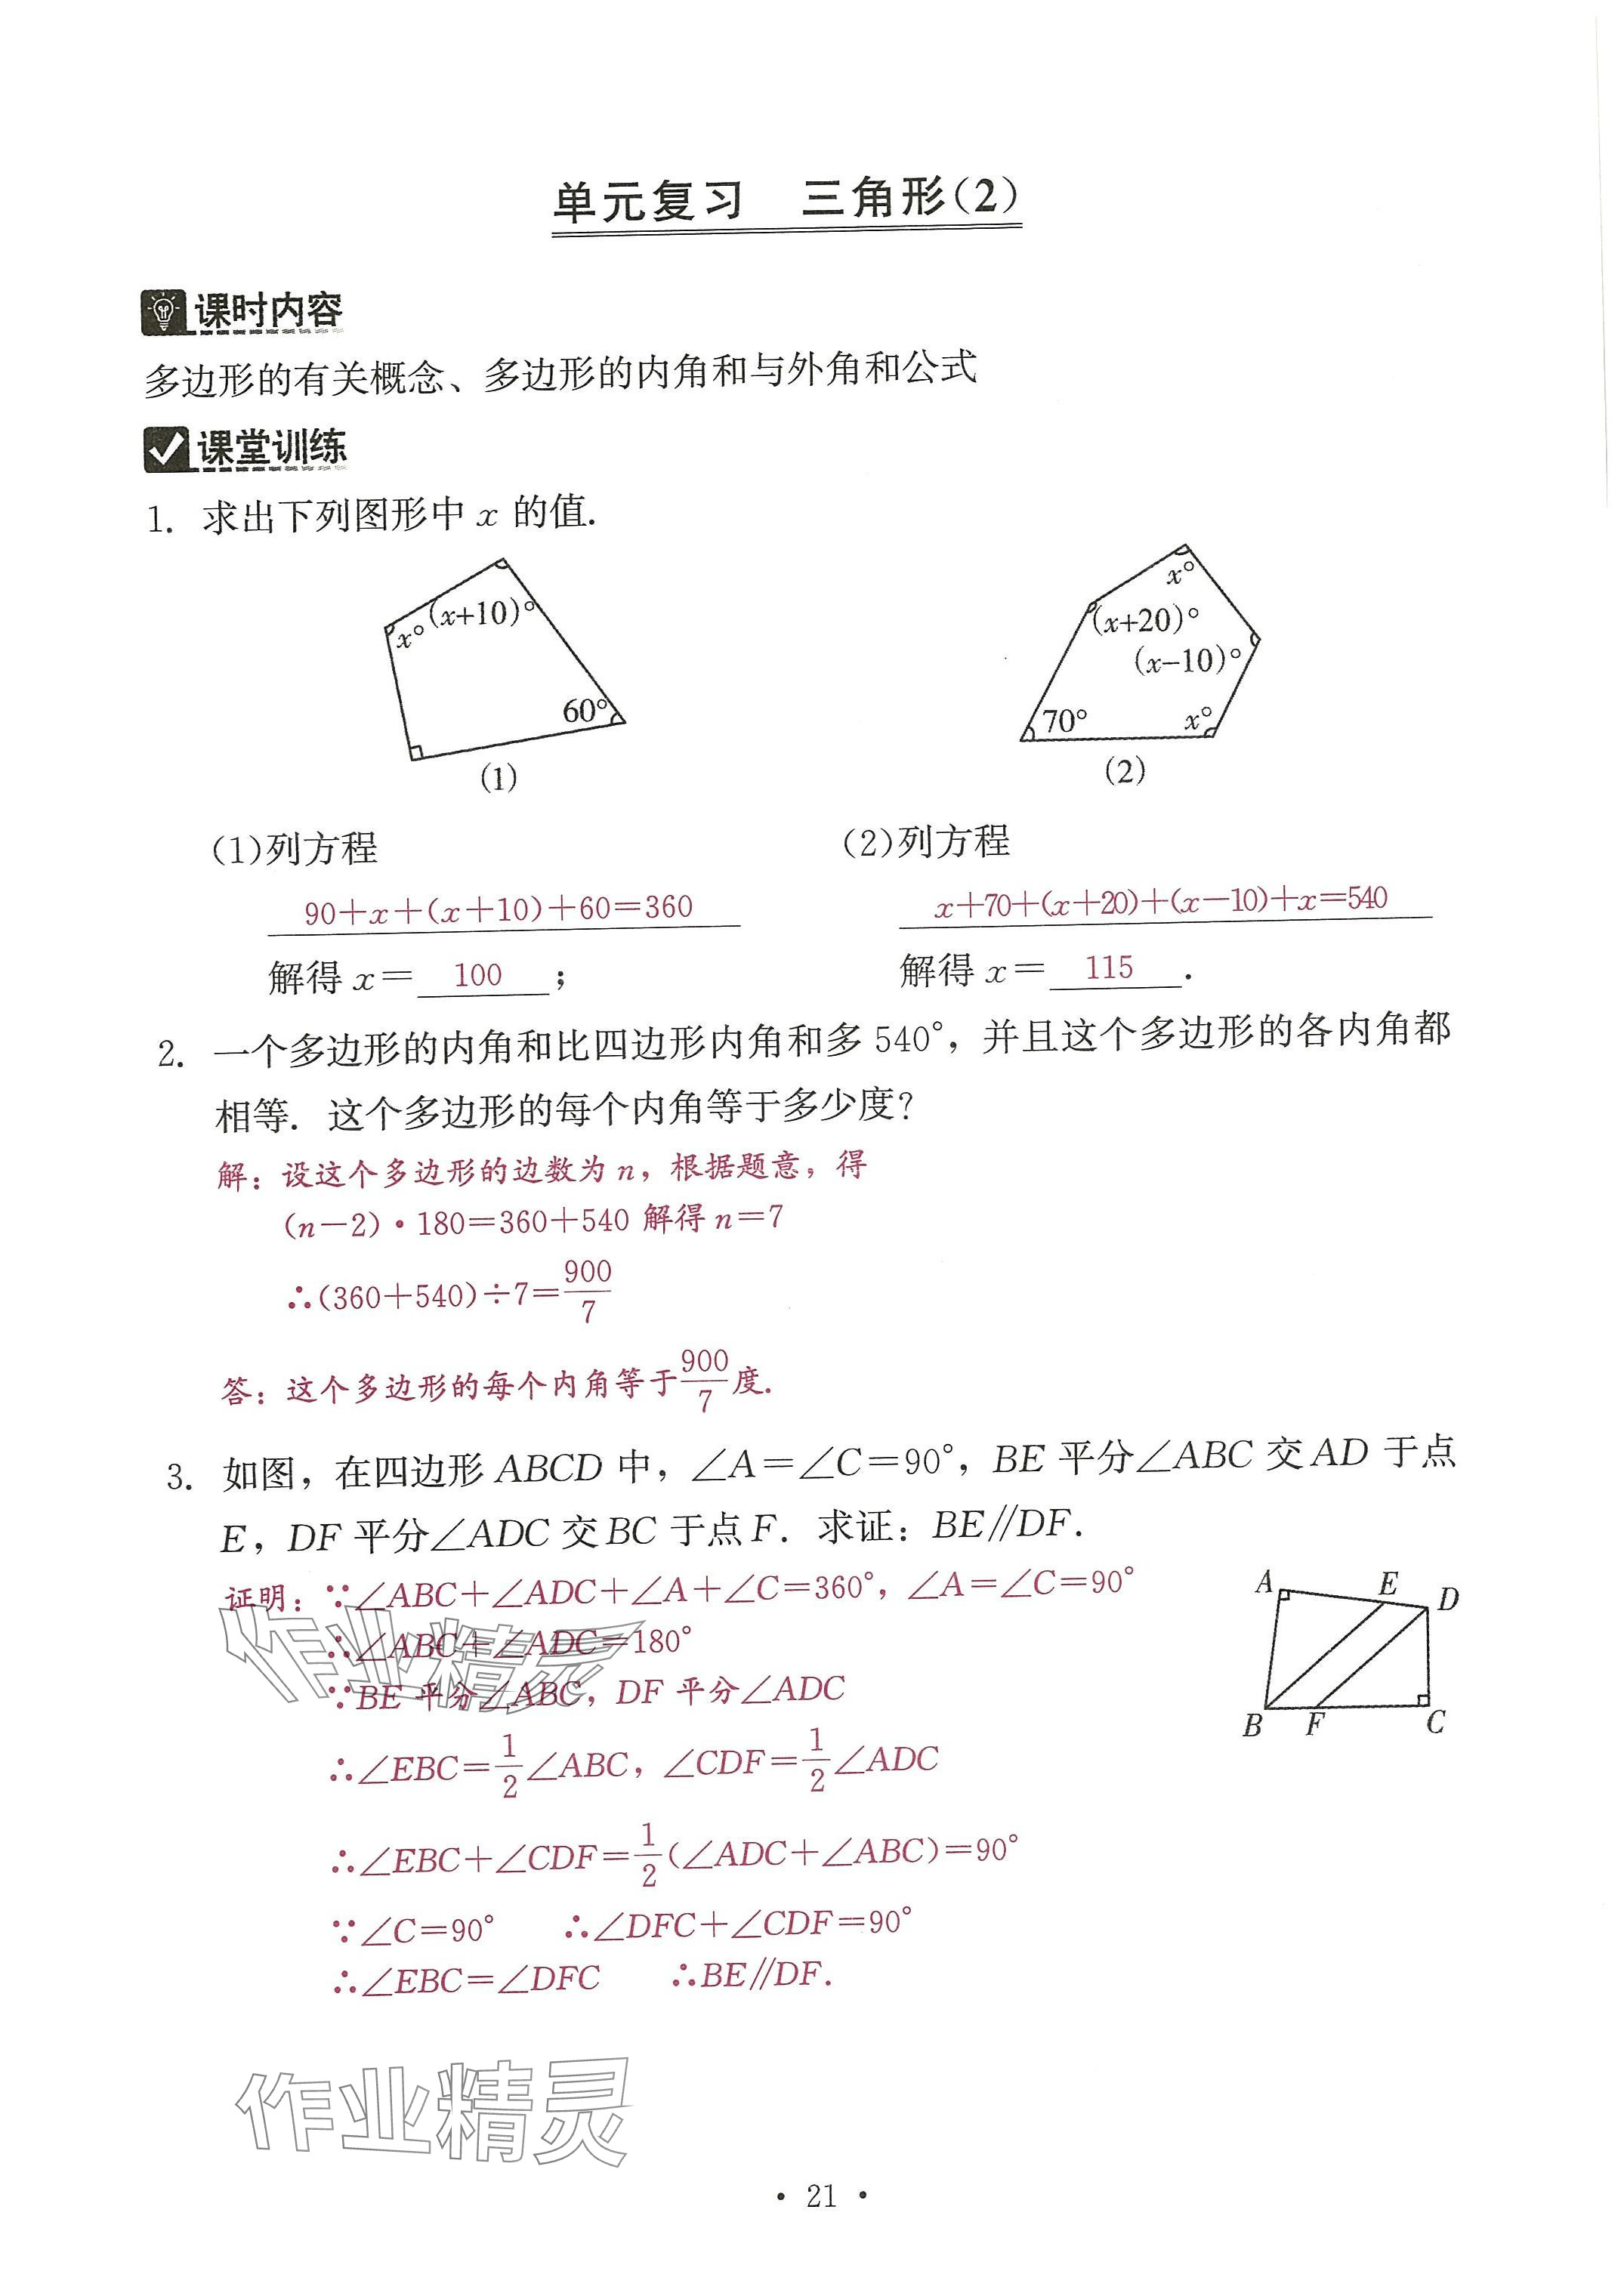 单元复习 三角形(2)
课时内容
多边形的有关概念、多边形的内角和与外角和公式
课堂训练
1. 求出下列图形中 x 的值.
x° (x+10)° 60°
(1)
x° (x+20)° (x-10)° 70° x°
(2)
(1)列方程
90+x+(x+10)+60=360
解得 x= 100 ;
(2)列方程
x+70+(x+20)+(x-10)+x=540
解得 x= 115 .
2. 一个多边形的内角和比四边形内角和多 540°, 并且这个多边形的各内角都
相等. 这个多边形的每个内角等于多少度?
解: 设这个多边形的边数为 n, 根据题意, 得
(n-2)·180=360+540 解得 n=7
∴(360+540)÷7=900/7
答: 这个多边形的每个内角等于900/7度.
3. 如图, 在四边形 ABCD 中, ∠A=∠C=90°, BE 平分∠ABC 交 AD 于点
E, DF 平分∠ADC 交 BC 于点 F. 求证: BE∥DF.
证明: ∵∠ABC+∠ADC+∠A+∠C=360°, ∠A=∠C=90°
∴∠ABC+∠ADC=180°
∵BE 平分∠ABC, DF 平分∠ADC
∴∠EBC=1/2∠ABC, ∠CDF=1/2∠ADC
∴∠EBC+∠CDF=1/2(∠ADC+∠ABC)=90°
∵∠C=90° ∴∠DFC+∠CDF=90°
∴∠EBC=∠DFC ∴BE∥DF.
A E D
B F C
作业精灵
作业精灵
· 21 ·